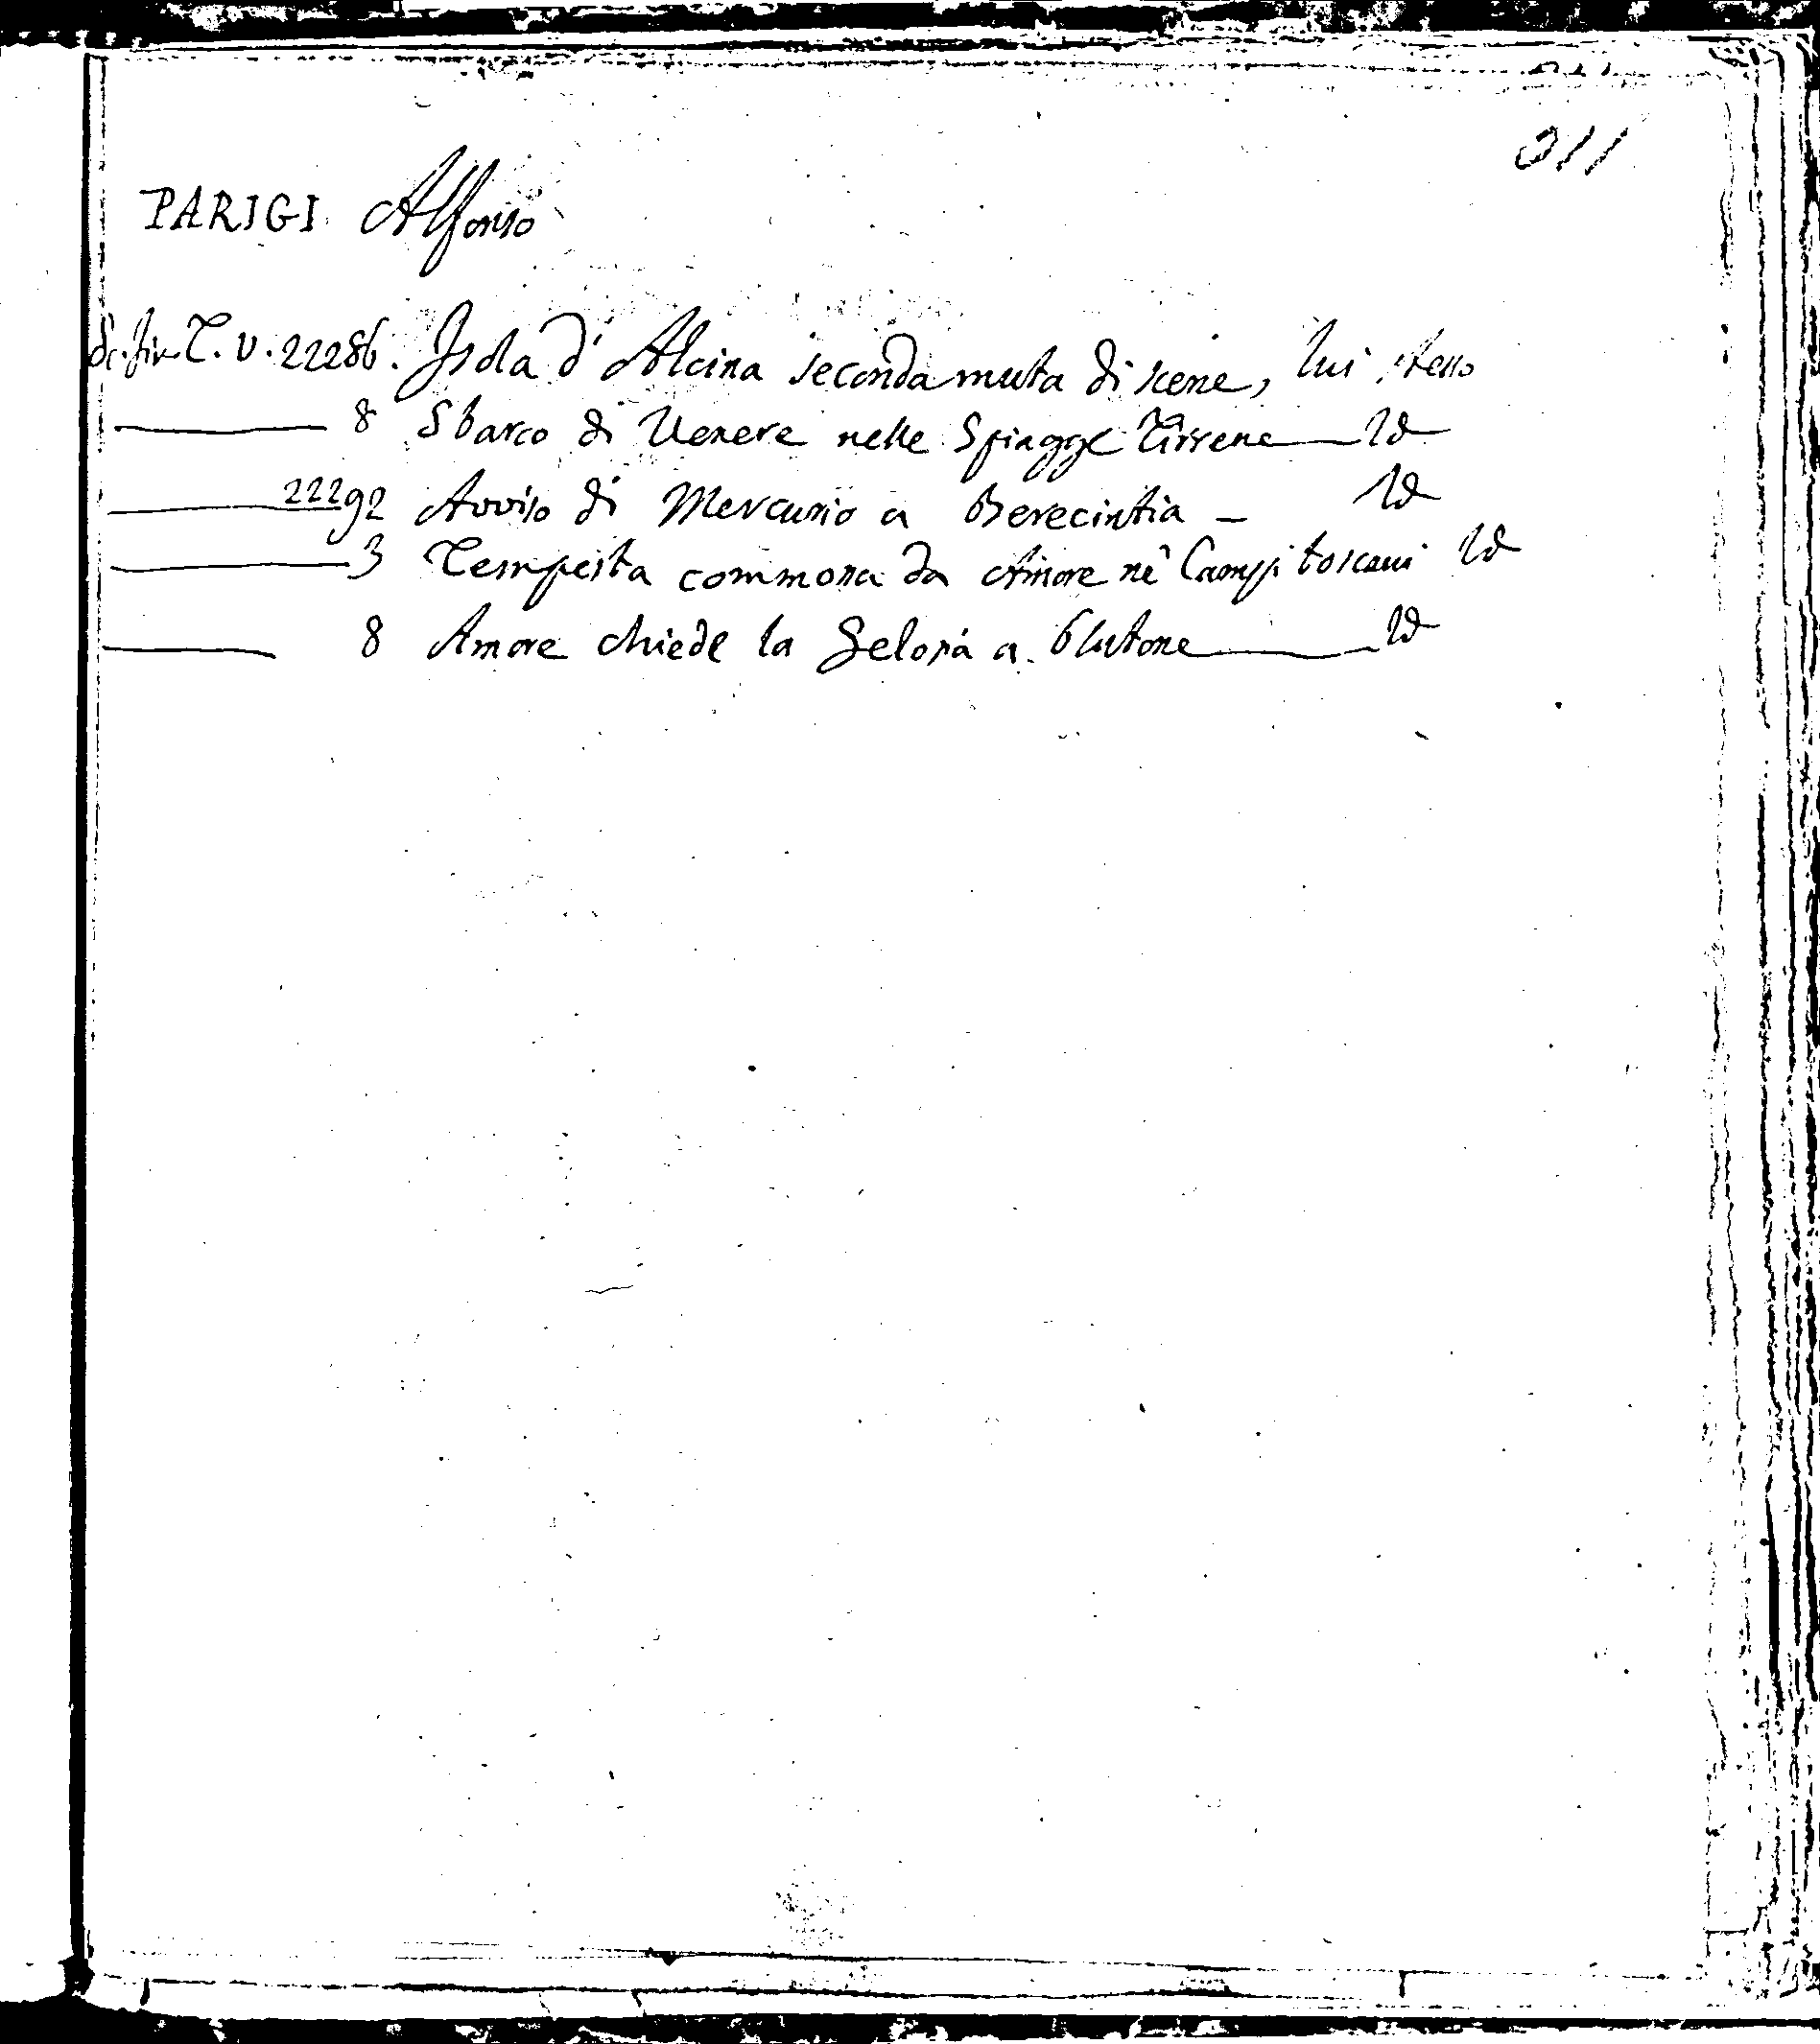 311
PARIGI Alfonso
Sc. fir. T. V. 22286. Isola d' Alcina seconda muta di scene, lui stesso
8 Sbarco di Venere nelle Spiagge Tirrene Id
22292 Avviso di Mercurio a Berecintia - Id
3 Tempesta commossa da Amore ne' Campi toscani Id
8 Amore chiede la Gelosia a Plutone Id